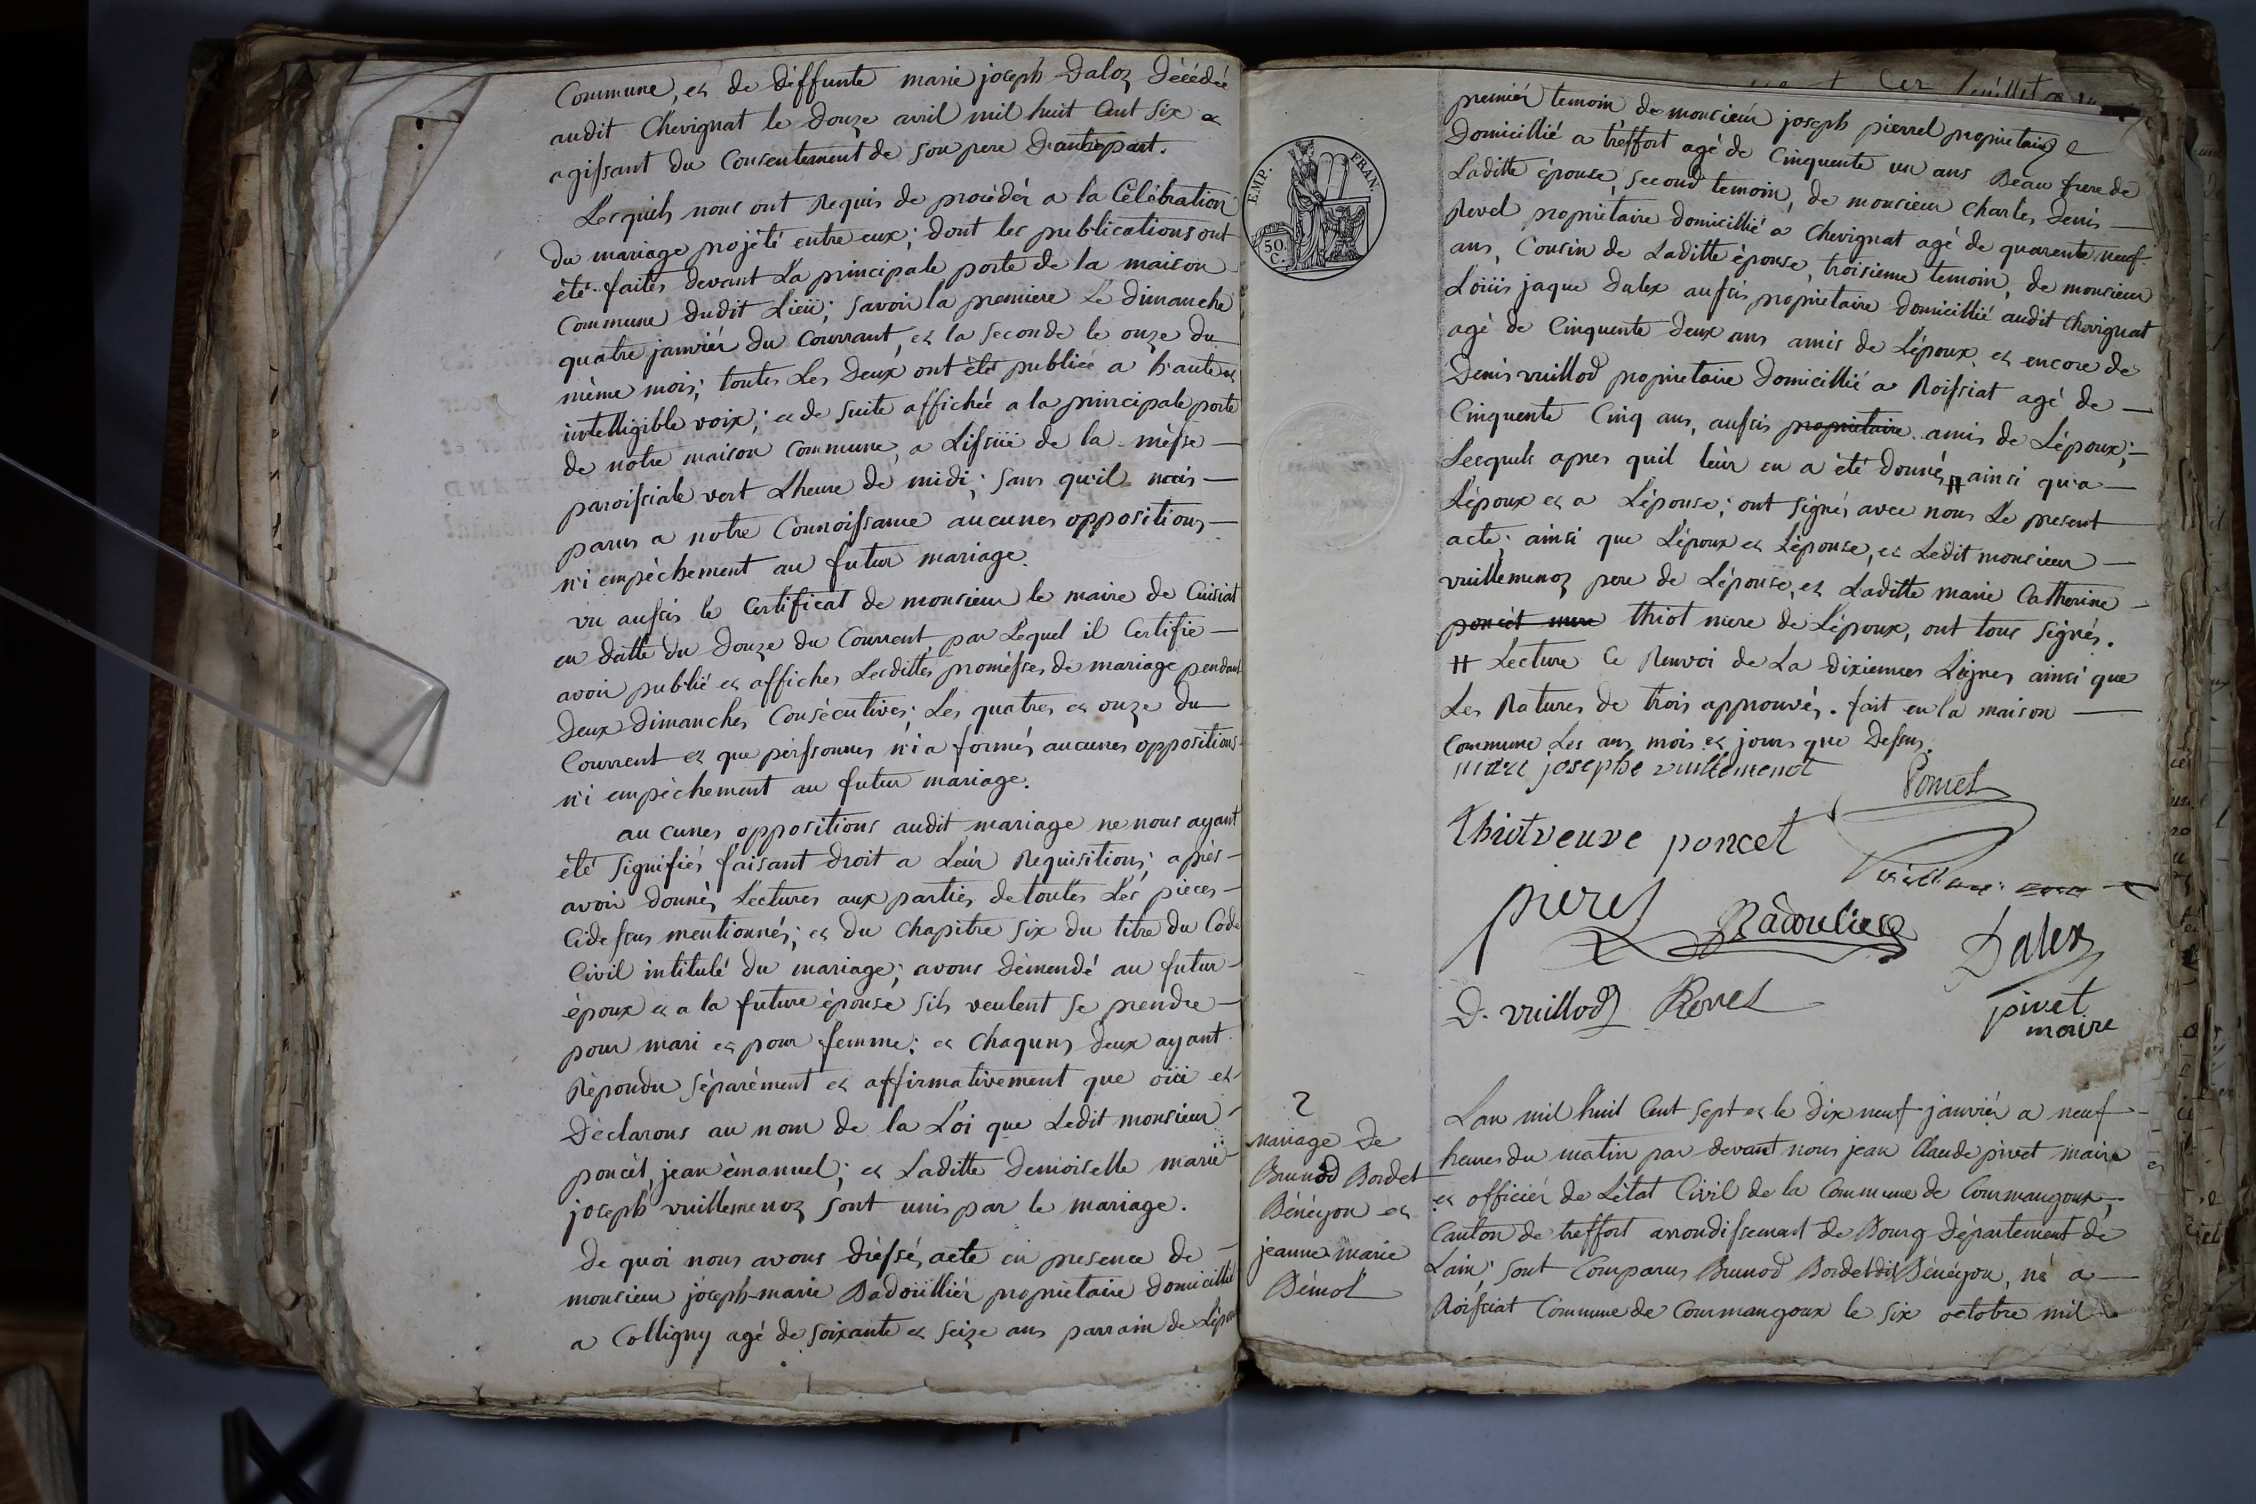 Commune, et de deffunte marie joseph Daloz décédée
audit Chevignat le douze avril mil huit Cent Six et
agissant du Consentement de Son pere d'autrepart.
Lesquels nous ont Requis de procédér a la Célébration
du mariage projèté entre eux; dont les publications ont
été faites devant La principale porte de la maison
Commune dudit Lieu; Savoir la premiere Le dimanche
quatre janviér du Courrant, et la seconde le onze du
mème mois; toutes Les deux ont étés publiée a haute et
intelligible voix; et de suite affichée a la principale porte
de notre maison Commune, a Lissüe de la mésse
paroissiale vert Lheure de midi; Sans qu'il
parus a notre Connoissance aucunes oppositions
n'i empèchement au futur mariage.
vu aussis le Certificat de monsieur le maire de Cuisiat
en datte du douze du Courrent, par Lequel il Certifie
avoir publié et affiches Lesdittes promésses de mariage pendant
deux dimanches Consécutives; Les quatres et onze du
Courrent et que pérssonnes n'i a formés aucunes oppositions
n'i empèchement au futur mariage.
aucunes oppositions audit mariage ne nous ayant
été signifiés faisant droit a Leur Requisitions; après
avoir donnés Lectures aux parties de toutes Les pieces
Cidessus mentionnés; et du chapitre six du titre du Code
Civil intitulé du mariage; avons démendé au futur
époux et a la future épouse sils veulent se prendre
pour mari et pour femme; et chaquns deux ayant
Répondu séparément et affirmativement que oüi et
Déclarons au nom de la Loi que Ledit monsieur
poncèt, jean émanuel; et Laditte demoiselle marie
joseph vuillemenoz sont unis par le mariage.
de quoi nous avons dréssés acte en presence de
monsieur joseph-marie Badoüilliér propriètaire domicillié
a Colligny agé de soixante et seize ans parrain de Lépoux
EMP. FRAN.
50.
C.
premiér temoin de monsieur joseph pierrel propriètaire
Domicillié a tréffort agé de Cinquente un ans Beau frere de
Laditte épouse, second temoin, de monsieur Charles Denis
Revel propriètaire domicillié a Chevignat agé de quarente neuf
ans, Cousin de Laditte épouse, troisieme temoin, de monsieur
Loüis jaque Dalex aussis propriètaire domicillié audit Chevignat
agé de Cinquente deux ans amis de Lépoux et encore de
Denis vuillod propriètaire domicillié a Roissiat agé de
Cinquente Cinq ans, aussis propriètaire amis de Lépoux;
Lesquels apres quil leur en a été donnés # ainsi qu'a
Lépoux et a Lépouse; ont signés avec nous Le present
acte; ainsi que Lépoux et Lépouse, et Ledit monsieur
vuillemenoz pere de Lépouse, et Laditte marie Catherine
poncèt mere thiot mere de Lépoux, ont tous signés.
# Lecture Ce Renvoi de La dixiemes Lignes ainsi que
Les Ratures de trois approuvés. fait en la maison
Commune Les ans, mois et jours que Dessus.
marie josephe vuillemenot
Poncet
Thiot veuve poncet
Badouilier
Dalex
D. vuillod
Revel
pivet
maire
2
mariage De
Brunod Bordet
Bénéyon et
jeanne marie
L'an mil huit Cent Sept et le dix neuf janviér a neuf
heures du matin par devant nous jean Claude pivet maire
et officiér de Létat Civil de la Commune de Courmangoux,
Canton de treffort arrondissement de Bourg Département de
Lain; sont Comparus Brunod Bordet dit Bénéyon, né a
Roissiat Commune de Courmangoux le six octobre mil